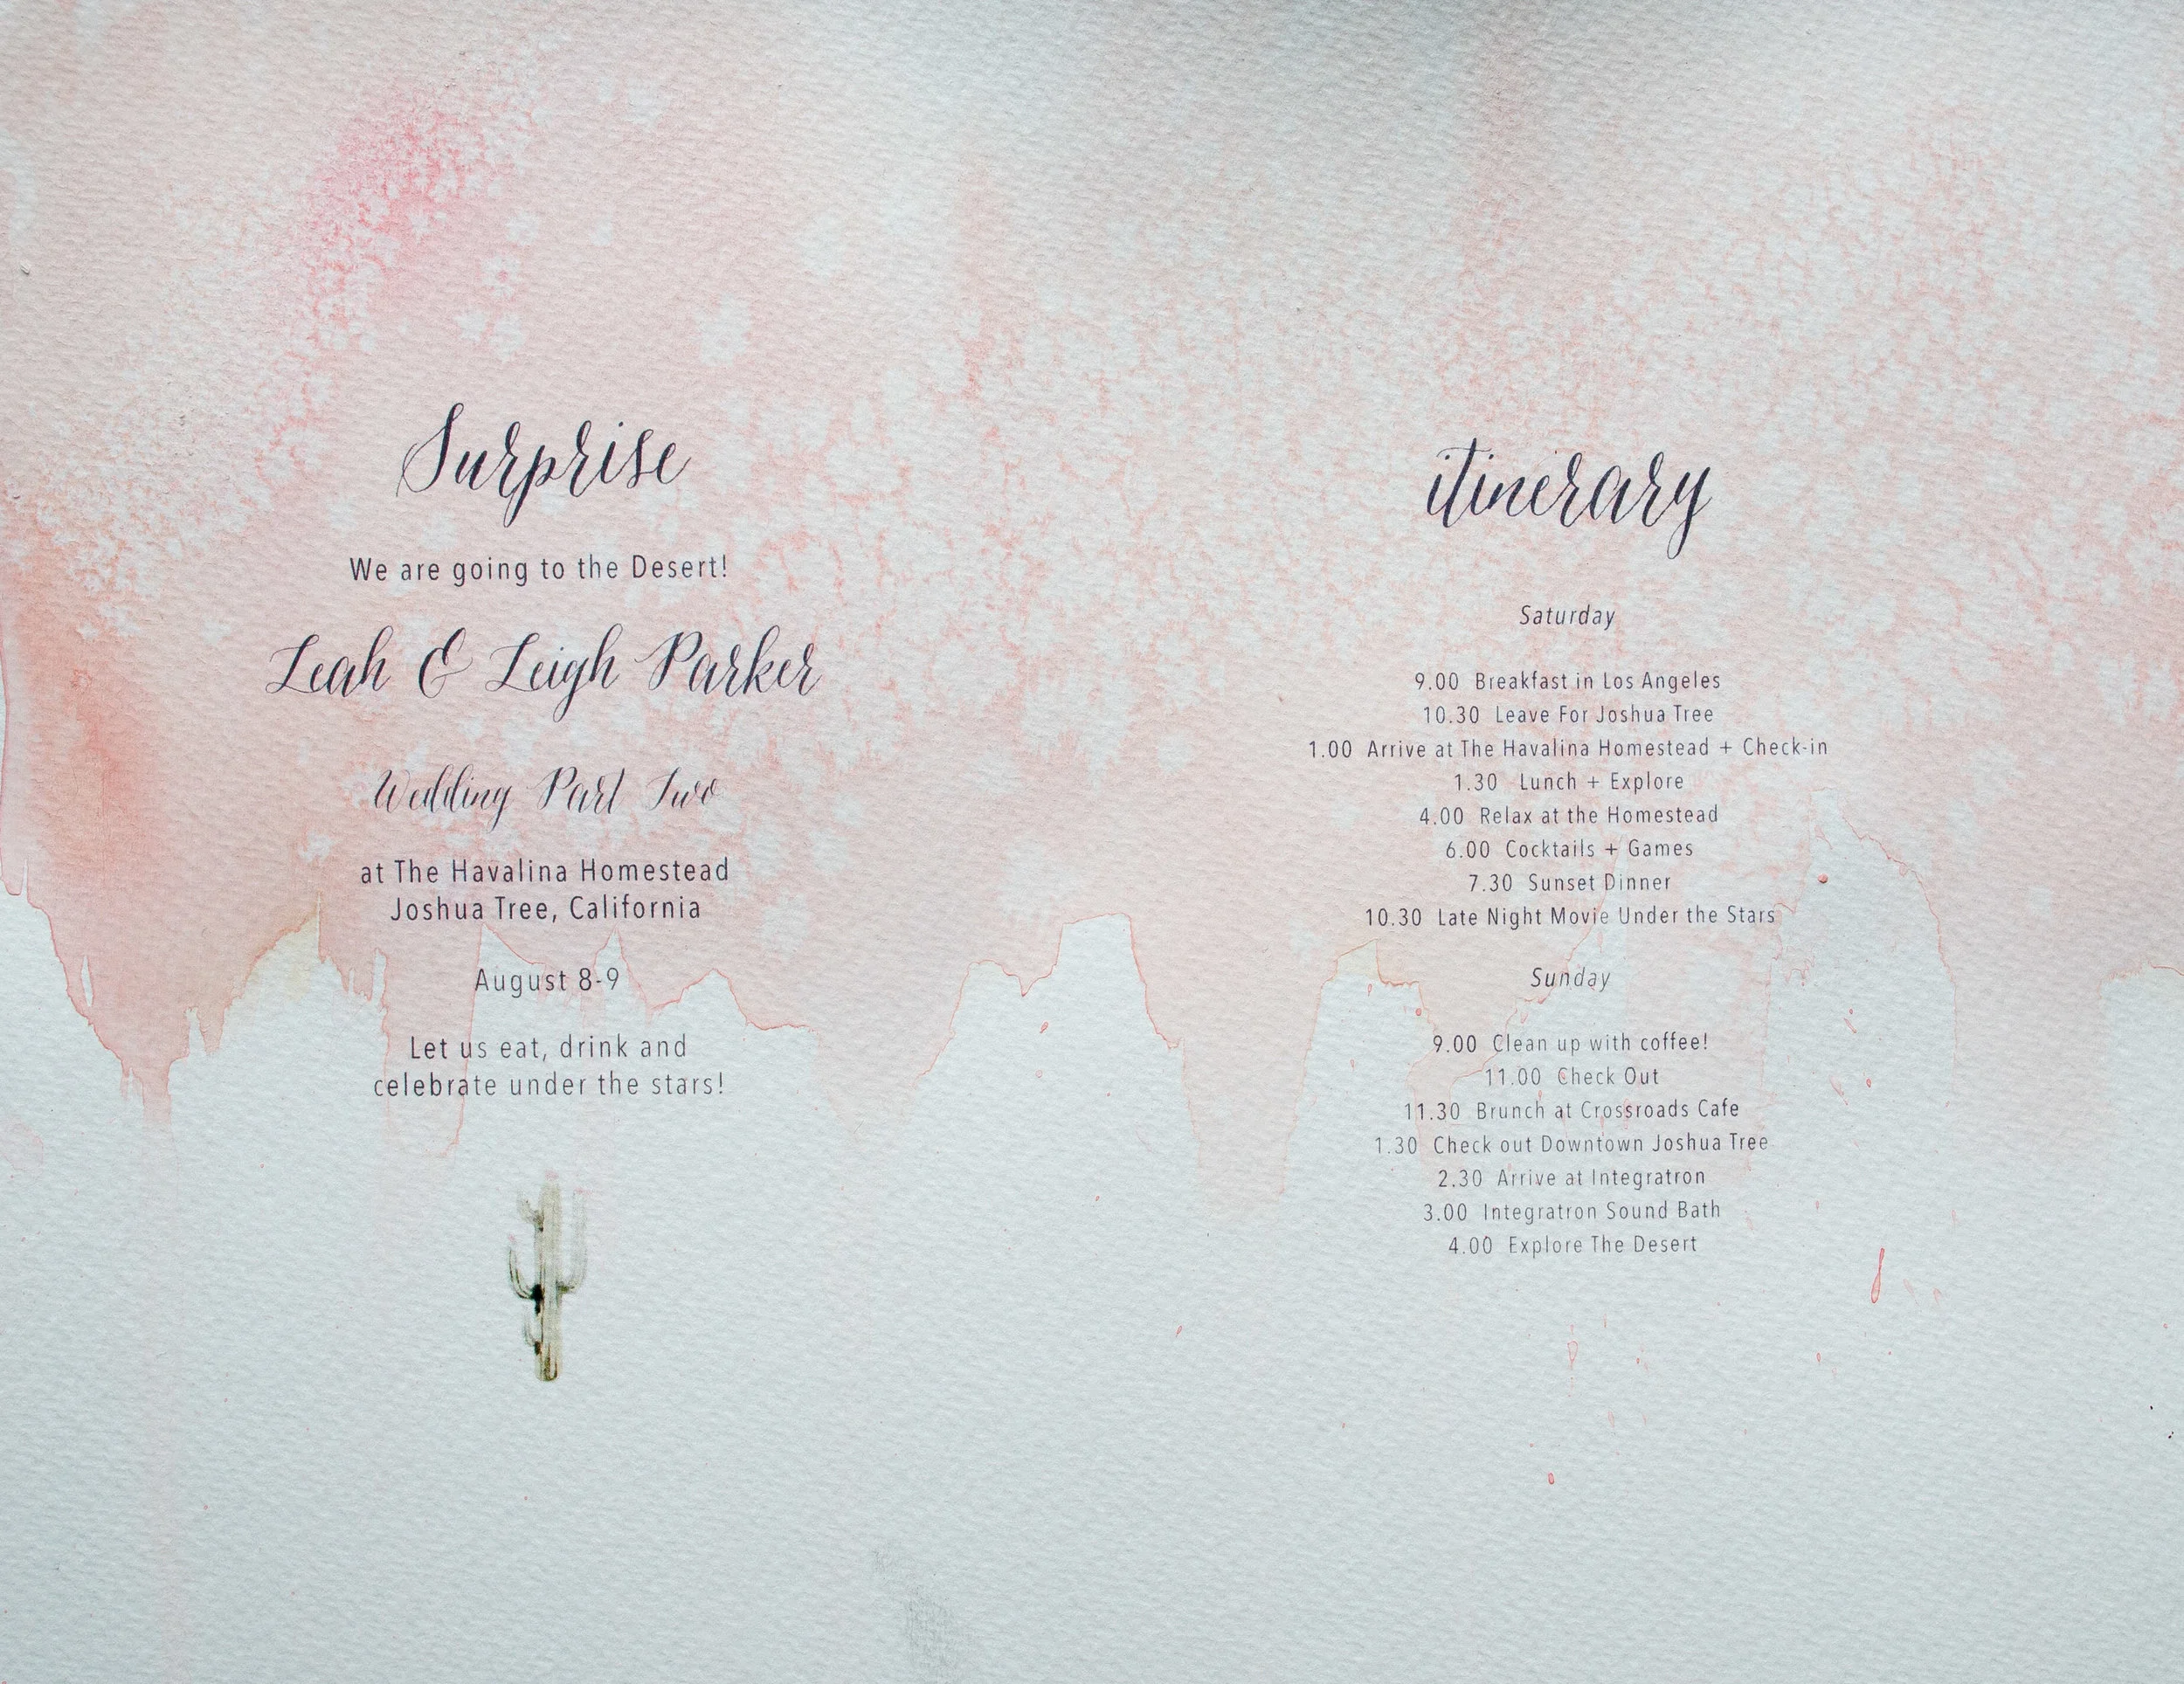 Surprise
We are going to the Desert!
Leah & Leigh Parker
Wedding Part Two
at The Havalina Homestead
Joshua Tree, California
August 8-9
Let us eat, drink and
celebrate under the stars!
itinerary
Saturday
9.00 Breakfast in Los Angeles
10.30 Leave For Joshua Tree
1.00 Arrive at The Havalina Homestead + Check-in
1.30 Lunch + Explore
4.00 Relax at the Homestead
6.00 Cocktails + Games
7.30 Sunset Dinner
10.30 Late Night Movie Under the Stars
Sunday
9.00 Clean up with coffee!
11.00 Check Out
11.30 Brunch at Crossroads Cafe
1.30 Check out Downtown Joshua Tree
2.30 Arrive at Integratron
3.00 Integratron Sound Bath
4.00 Explore The Desert